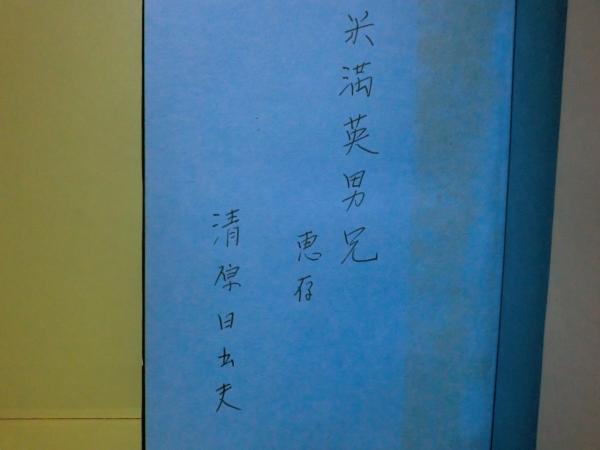 米満英男兄
恵存
清原日出夫